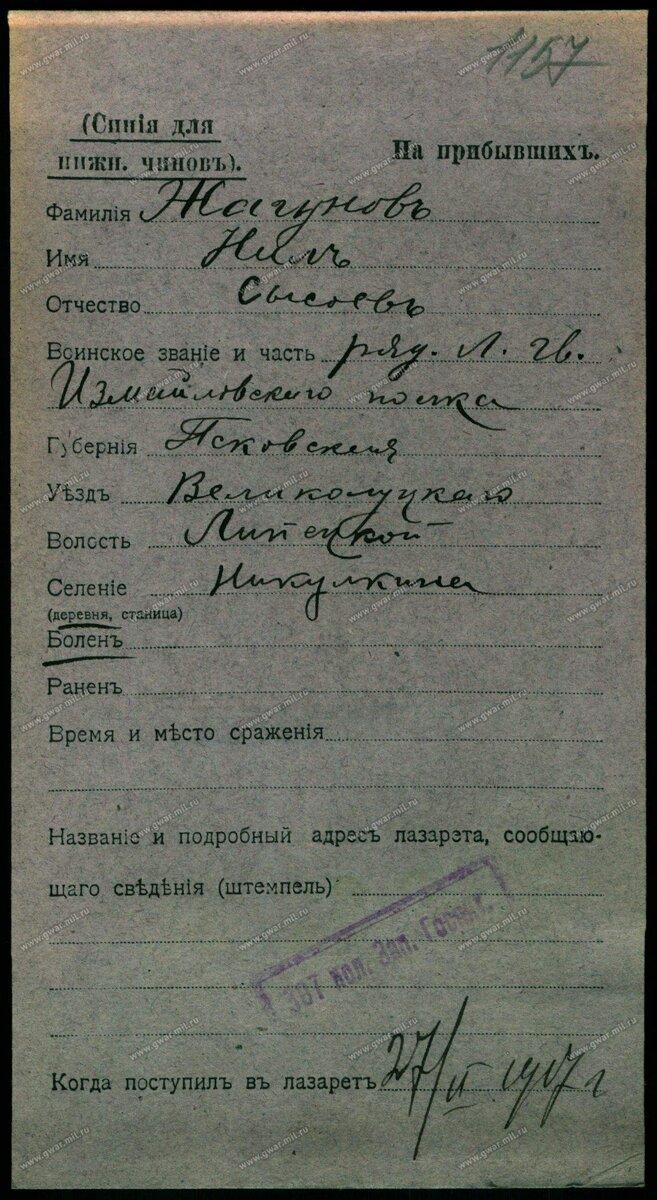 1157
(Синія для
нижн. чиновъ).
На прибывшихъ.
Фамилія Жагуновъ
Имя Нилъ
Отчество Сысоевъ
Воинское званіе и часть ряд. Л. гв.
Измайловского полка
Губернія Псковская
Уѣздъ Великолуцкаго
Волость Липецкой
Селеніе Никулкина
(деревня, станица)
Боленъ
Раненъ
Время и мѣсто сраженія
Названіе и подробный адресъ лазарета, сообщаю-
щаго свѣдѣнія (штемпель)
387 пол. Зап. Госп.
Когда поступилъ въ лазаретъ 27/II 1917 г
www.gwar.mil.ru